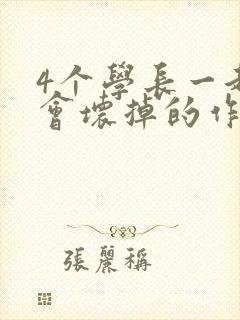 4个學長一
會壞掉的作
張麗稱